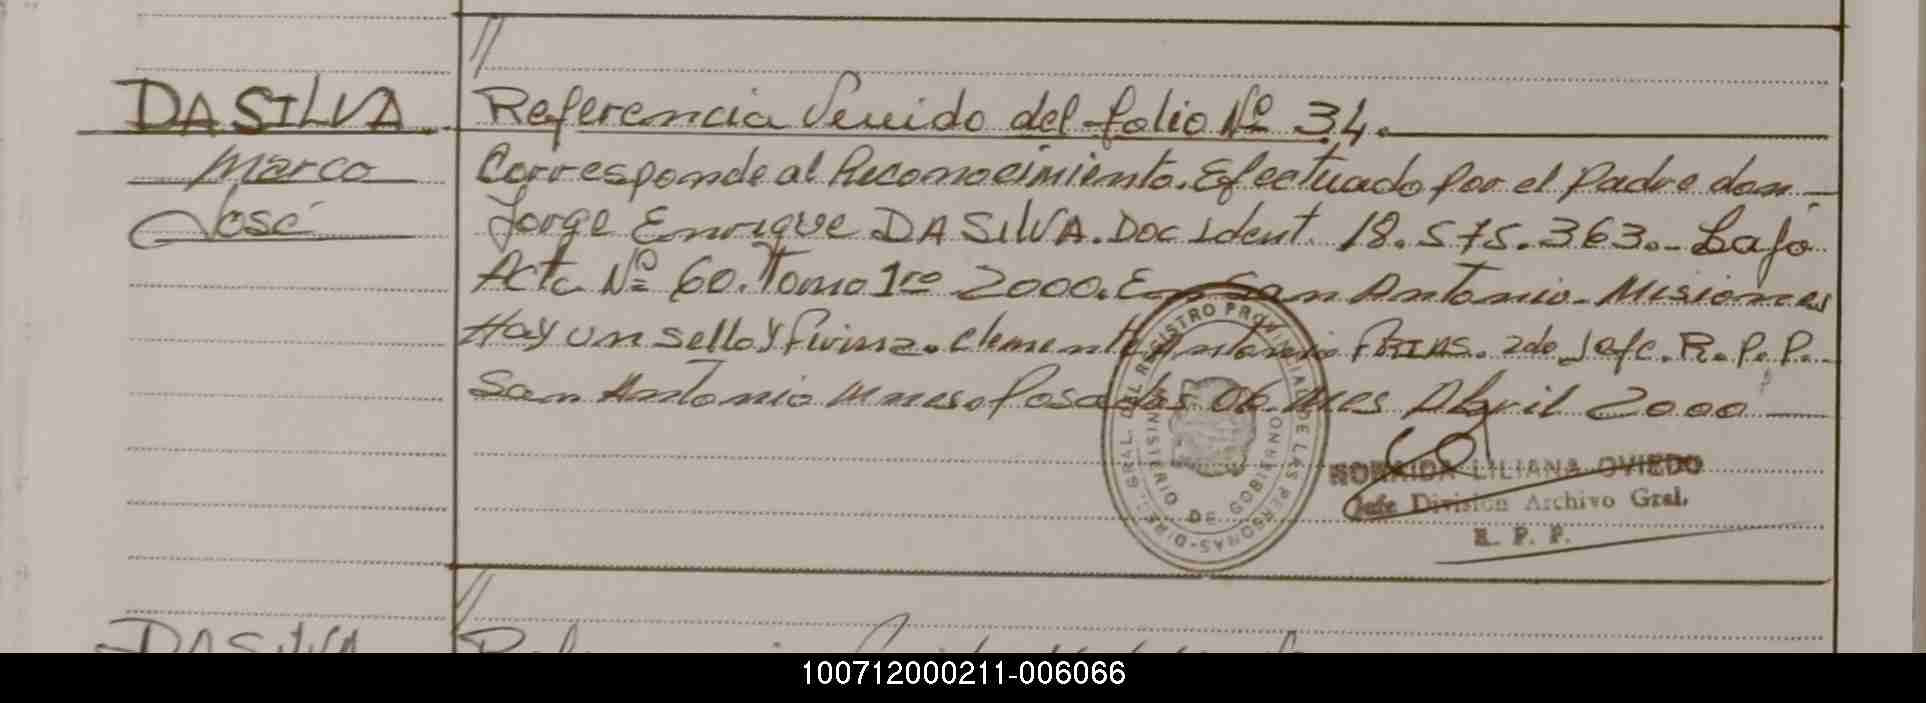 //
DA SILVA.
Marco
José
Referencia Venido del folio Nº 34.
Corresponde al Reconocimiento. Efectuado por el padre don
Jorge Enrique DA SILVA. Doc Ident. 18.575.363.- Bajo
Acta Nº 60. Tomo 1ro 2000. En San Antonio. Misiones
Hay un sello y firma. Clemente Antonio FRIAS. 2do Jefe. R. P. P.
San Antonio Mnes. Posadas 06. Mes Abril 2000
DIREC. GRAL. DEL REGISTRO PROVINCIAL DE LAS PERSONAS
MINISTERIO DE GOBIERNO
NORAIDA LILIANA OVIEDO
Jefe División Archivo Gral.
R. P. P.
//
DA SILVA
100712000211-006066